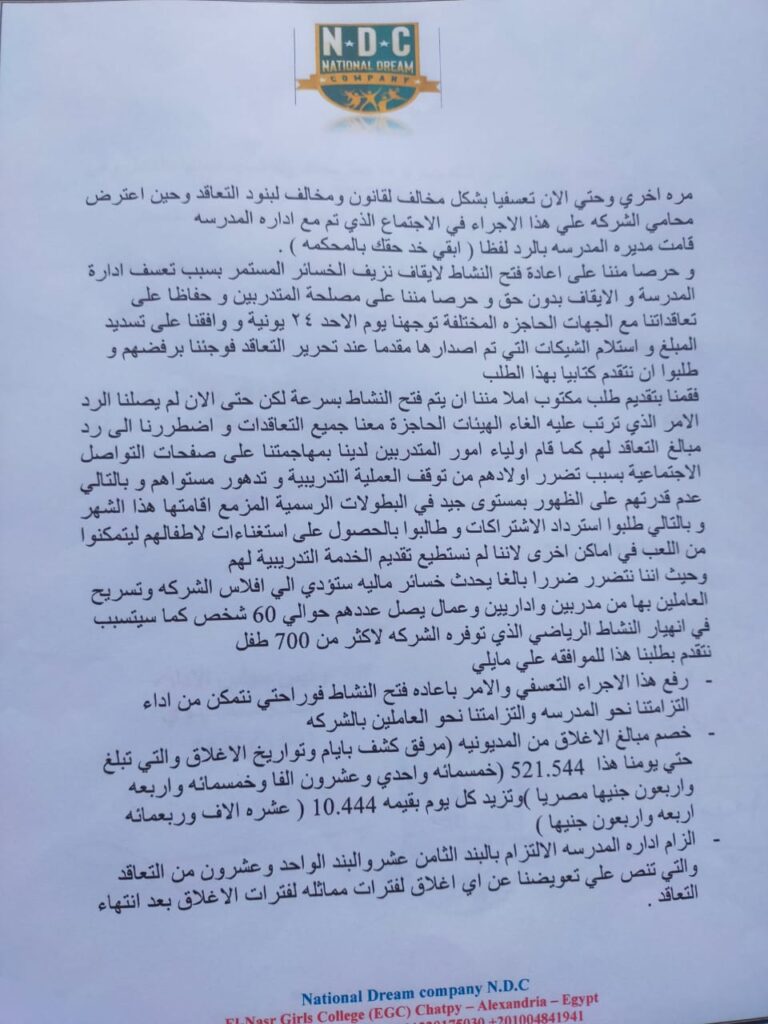 N★D★C
NATIONAL DREAM
COMPANY
مره اخري وحتي الان تعسفيا بشكل مخالف لقانون ومخالف لبنود التعاقد وحين اعترض
محامي الشركه علي هذا الاجراء في الاجتماع الذي تم مع اداره المدرسه
قامت مديره المدرسه بالرد لفظا ( ابقي خد حقك بالمحكمه ) .
و حرصا مننا على اعادة فتح النشاط لايقاف نزيف الخسائر المستمر بسبب تعسف ادارة
المدرسة و الايقاف بدون حق و حرصا مننا على مصلحة المتدربين و حفاظا على
تعاقداتنا مع الجهات الحاجزه المختلفة توجهنا يوم الاحد ٢٤ يونية و وافقنا على تسديد
المبلغ و استلام الشيكات التي تم اصدارها مقدما عند تحرير التعاقد فوجئنا برفضهم و
طلبوا ان نتقدم كتابيا بهذا الطلب
فقمنا بتقديم طلب مكتوب املا مننا ان يتم فتح النشاط بسرعة لكن حتى الان لم يصلنا الرد
الامر الذي ترتب عليه الغاء الهيئات الحاجزة معنا جميع التعاقدات و اضطررنا الى رد
مبالغ التعاقد لهم كما قام اولياء امور المتدربين لدينا بمهاجمتنا على صفحات التواصل
الاجتماعية بسبب تضرر اولادهم من توقف العملية التدريبية و تدهور مستواهم و بالتالي
عدم قدرتهم على الظهور بمستوى جيد في البطولات الرسمية المزمع اقامتها هذا الشهر
و بالتالي طلبوا استرداد الاشتراكات و طالبوا بالحصول على استغناءات لاطفالهم ليتمكنوا
من اللعب في اماكن اخرى لاننا لم نستطيع تقديم الخدمة التدريبية لهم
وحيث اننا نتضرر ضررا بالغا يحدث خسائر ماليه ستؤدي الي افلاس الشركه وتسريح
العاملين بها من مدربين واداريين وعمال يصل عددهم حوالي 60 شخص كما سيتسبب
في انهيار النشاط الرياضي الذي توفره الشركه لاكثر من 700 طفل
نتقدم بطلبنا هذا للموافقه علي مايلي
- رفع هذا الاجراء التعسفي والامر باعاده فتح النشاط فوراحتي نتمكن من اداء
التزامتنا نحو المدرسه والتزامتنا نحو العاملين بالشركه
- خصم مبالغ الاغلاق من المديونيه (مرفق كشف بايام وتواريخ الاغلاق والتي تبلغ
حتي يومنا هذا 521.544 (خمسمائه واحدي وعشرون الفا وخمسمائه واربعه
واربعون جنيها مصريا )وتزيد كل يوم بقيمه 10.444 ( عشره الاف وربعمائه
اربعه واربعون جنيها )
- الزام اداره المدرسه الالتزام بالبند الثامن عشروالبند الواحد وعشرون من التعاقد
والتي تنص علي تعويضنا عن اي اغلاق لفترات مماثله لفترات الاغلاق بعد انتهاء
التعاقد .
National Dream company N.D.C
El-Nasr Girls College (EGC) Chatpy – Alexandria – Egypt
+201004841941